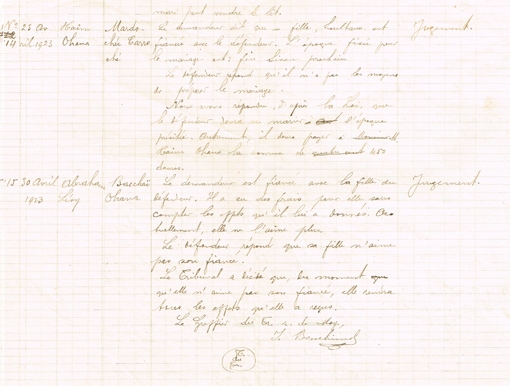 mari peut rendre le lit.
N° 23 Av Haïm Mardo- Le demandeur dit que sa fille, Sultana, est Jugement.
14 ril 1923 Ohana chée Tarro fiancée avec le défendeur. L'époque fixée pour
ché le mariage est: fin Sivan prochain.
Le défendeur répond qu'il n'a pas les moyens
de préparer le mariage.
Nous avons répondu, d'après la Loi, que
le défendeur devra se marier à l'époque
précitée. Autrement, il devra payer à M.
Haïm Ohana la somme de 450
15 30 Avril Abraham Barchaï Le demandeur est fiancé avec la fille du Jugement.
1923 Lévy Ohana défendeur. Il a eu des frais pour elle sans
compter les effets qu'il lui a donnés. Ac-
tuellement, elle ne l'aime plus.
Le défendeur répond que sa fille n'aime
pas son fiancé.
Le Tribunal a décidé que, du moment
qu'elle n'aime pas son fiancé, elle rendra
tous les effets qu'elle a reçus.
Le Greffier du Tr. r. de